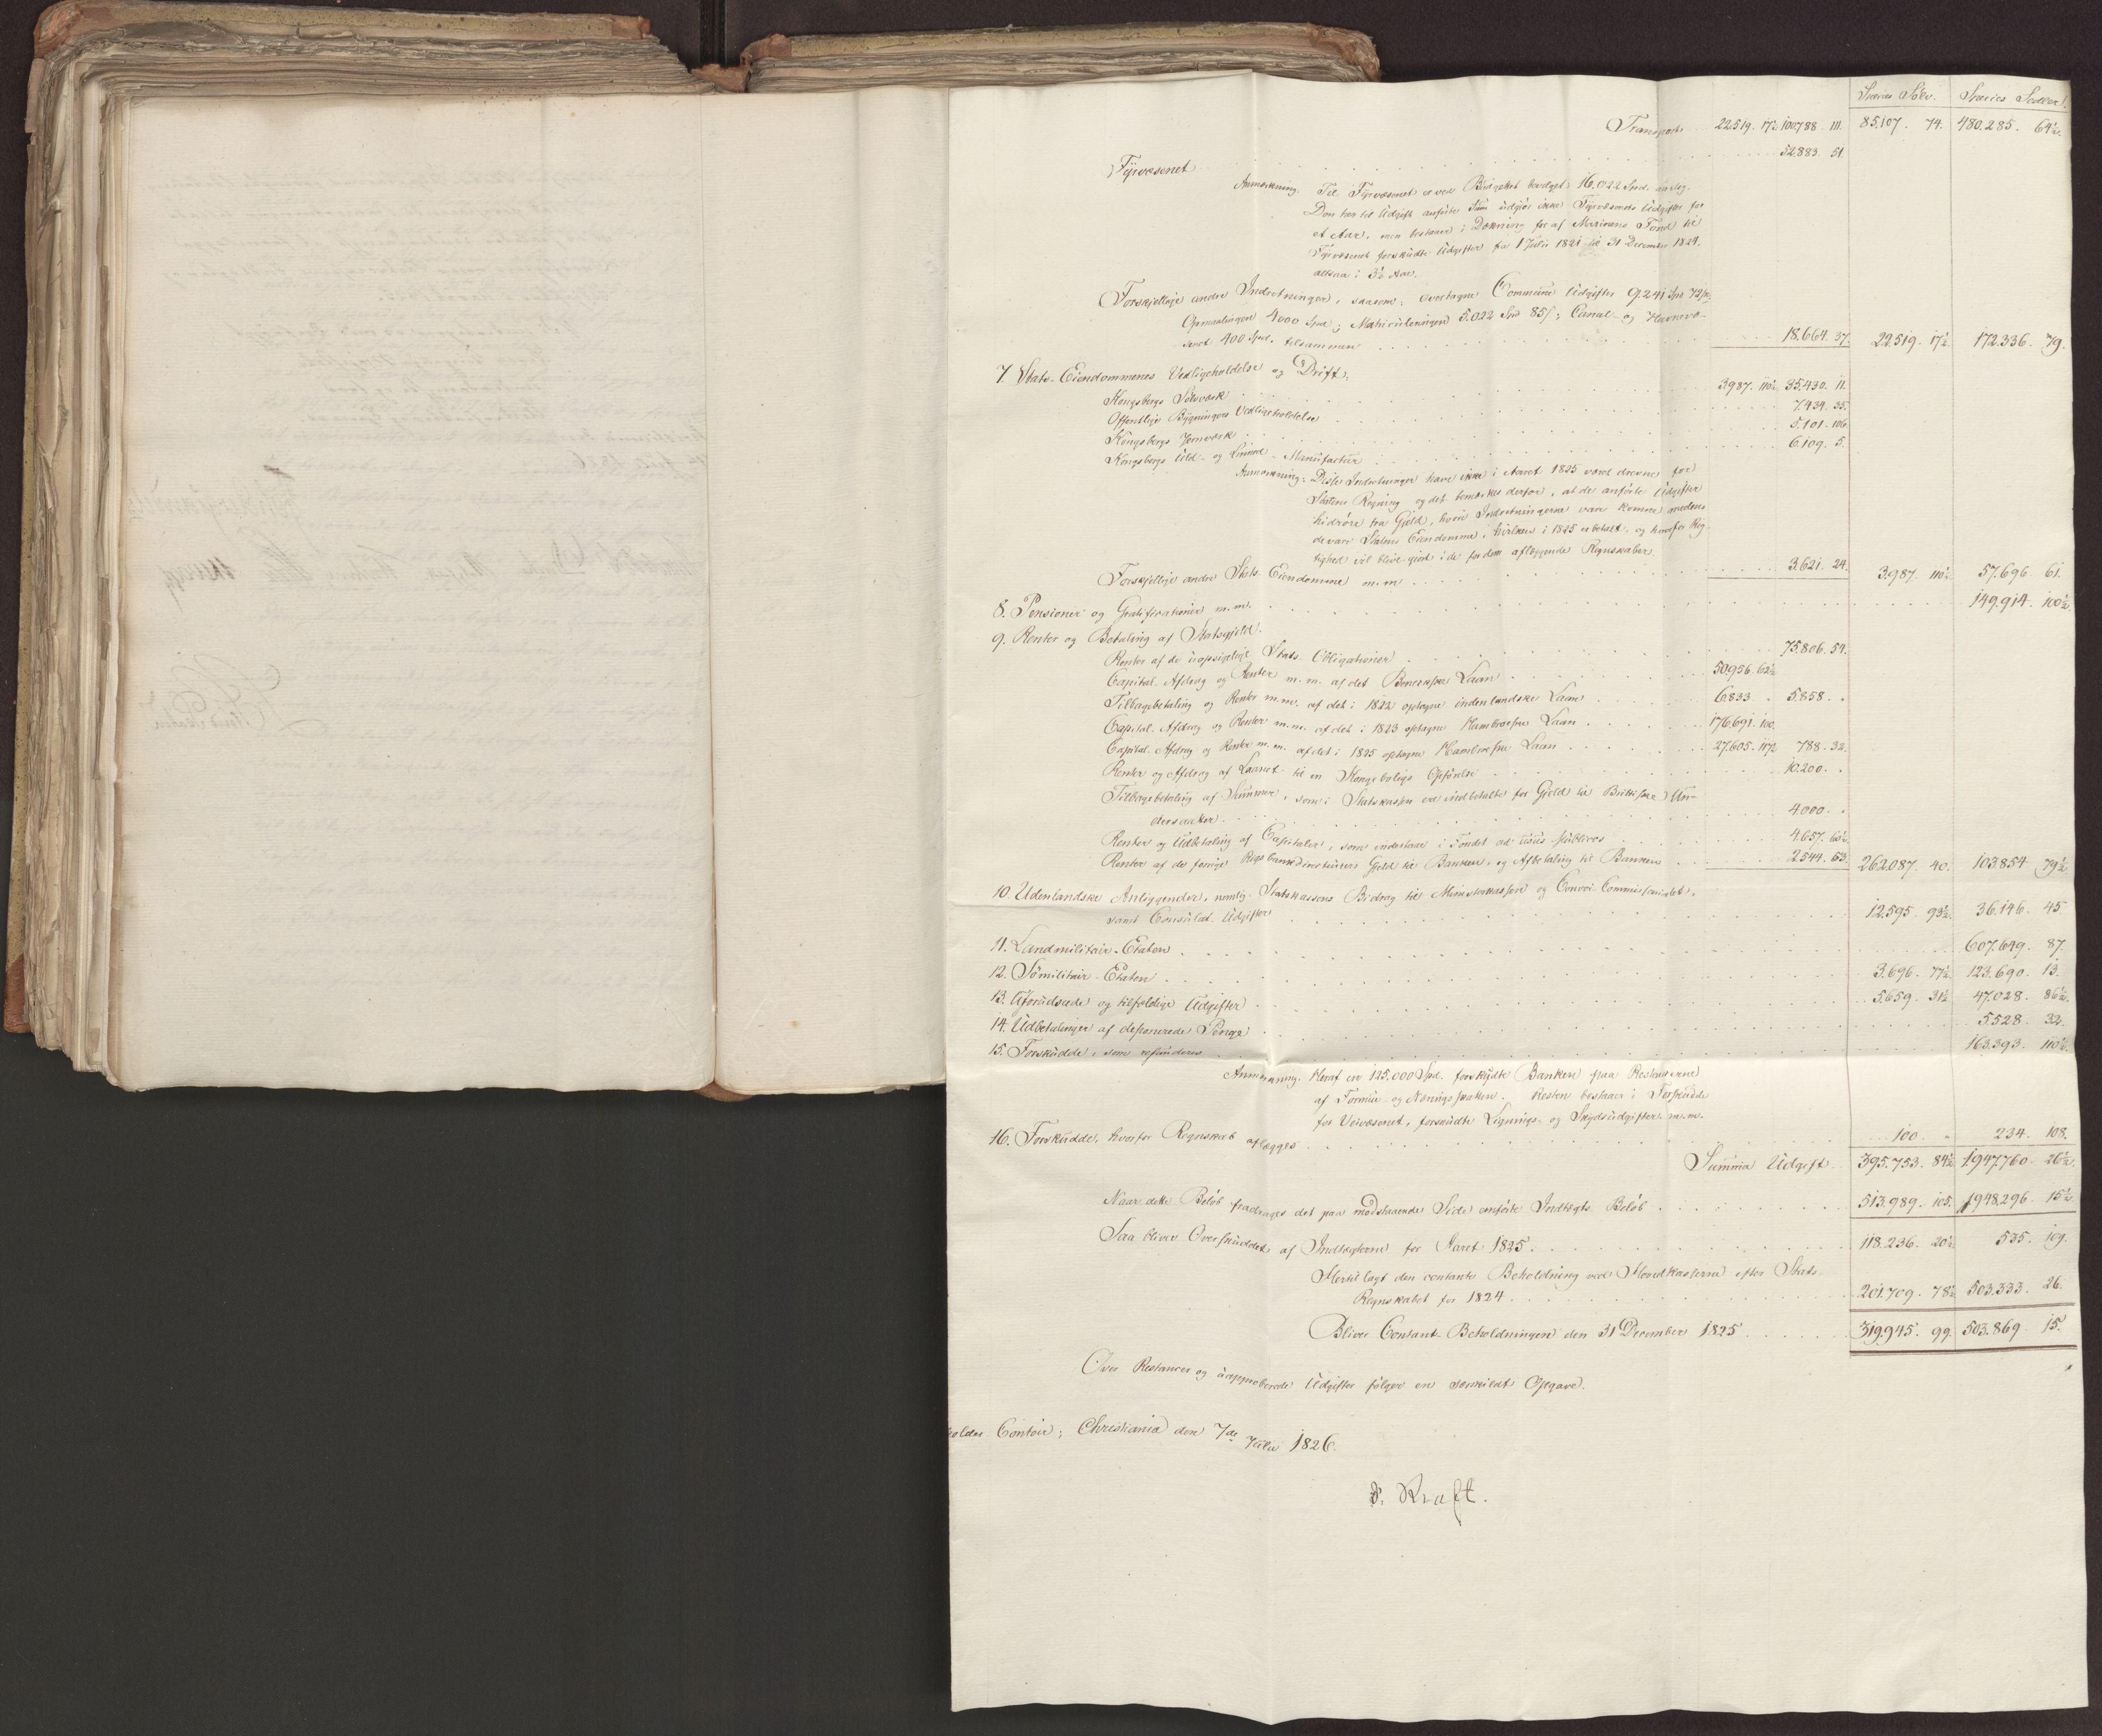 Species Sölv. Species Sedler.
Transport 22519. 17½ 100.788. 111. 85.107. 74. 480.285. 64½.
Fÿrvæsenet . . . 52.883. 51.
Anmærkning. Til Fÿrvæsenet er ved Büdgettet bevilget 16.022 Spd. aarlig.
Den her til Üdgift anförte Süm üdgjör ikke Fÿrvæsenets Üdgifter for
et Aar, men bestaaer i Dækning for af Marinens Fond til
Fÿrvæsenet forsküdte Üdgifter fra 1 Julii 1821 til 31 December 1824.
altsaa i 3½ Aar.
Forskjellige andre Indretninger, saasom: overtagne Commune Üdgifter 9.241 Spd 72 ß;
Opmaalingen 4000 Spd; Matriculeringen 5.022 Spd 85 ß; Canal- og Havnevæ-
senet 400 Spd. tilsammen . . . 18.664. 37. 22519. 17½. 172.336. 79.
7. Stats-Eiendommenes Vedligeholdelse og Drift:
Kongsbergs Sölvværk . . . 3987. 110½ 35.430. 11.
Offentlige Bÿgningers Vedligeholdelse . . . 7.434. 35.
Kongsbergs Jernværk . . . 5.101. 106.
Kongsbergs Üld- og Linned-Manüfactür . . . 6.109. 5.
Anmærkning: Disse Indretninger have ikke i Aaret 1825 været drevne for
Statens Regning og det bemærkes derfor, at de anförte Üdgifter
hidröre fra Gjæld, hvori Indretningerne vare komne medens
de vare Statens Eiendomme, hvilken i 1825 er betalt, og hvorfor Rig-
tighed vil blive gjort i de for dem aflæggende Regnskaber.
Forskjellige andre Stats-Eiendomme m.m. . . . 3.621. 24. 3.987. 110½. 57.696. 61.
8. Pensioner og Gratificationer m.m. . . . 149.914. 100½.
9. Renter og Betaling af Statsgjeld.
Renter af de üopsigelige Stats-Obligationer . . . 75.806. 54.
Capital-Afdrag og Renter m.m. af det Beneckske Laan . . . 50.956. 62½
Tilbagebetaling og Renter m.m. af det i 1822 optagne indenlandske Laan . . . 6.833. - 5.858. -
Capital-Afdrag og Renter m.m. af det i 1823 optagne Hambroeske Laan . . . 176.691. 100.
Capital-Afdrag og Renter m.m. af det i 1825 optagne Hambroeske Laan . . . 27.605. 117½ 788. 32.
Renter og Afdrag af Laanet til en Kongeboligs Opförelse . . . 10.200. -
Tilbagebetaling af Summer, som i Statskassen ere indbetalte for Gjeld til Brittiske Un-
dersaatter . . . 4.000. -
Renter og Üdbetaling af Capitaler, som indestaae i Fondet ad üsüs püblicos . . . 4.657. 60½
Renter af de forrige Rigsbankdirecteurers Gjeld til Banken, og Afbetaling til Banken . . . 2544. 53. 262.087. 40. 103.854. 79½
10. Udenlandske Anliggender, nemlig: Statskassens Bidrag til Ministerkassen og Convoi-Commissariatet,
samt Consülat-Üdgifter . . . 12.595. 93½. 36.146. 45.
11. Landmilitair-Etaten . . . 607.649. 87.
12. Sömilitair-Etaten . . . 3.696. 77½. 123.690. 13.
13. Uforüdseede og tilfældige Üdgifter . . . 5.659. 31½ 47.028. 86½.
14. Üdbetalinger af deponerede Penge . . . 5.528. 32.
15. Forsküdde, som refünderes . . . 163.393. 110½.
Anmærkning. Heraf ere 125.000 Spd. forskÿdte Banken paa Restancerne
af Formüe- og Nærings skatten. Resten bestaaer i Forsküdde
for Veivæsenet, forsküdte Lignings- og Skydsüdgifter m.m.
16. Forsküdde, hvorfor Regnskab aflægges . . . 100. - 234. 108.
Summa Üdgift. 395.753. 84½ 1.947.760. 26½.
Naar dette Belöb fradrages det paa modstaaende Side anförte Indtægts Belöb . . . 513.989. 105. 1948.296. 15½
Saa bliver Overskuddet af Indtægterne for Aaret 1825 . . . 118.236. 20½ 535. 109.
Hertil lagt den contante Beholdning ved Hovedkasserne efter Stats-
Regnskabet for 1824 . . . 201.709. 78½ 503.333. 26.
Bliver Contant-Beholdningen den 31 December 1825 . . . 319.945. 99. 503.869. 15.
Over Restancer og üapproberede Üdgifter fölger en særskildt Opgave.
holder-Contoir; Christiania den 7de Julii 1826.
J. Kraft.